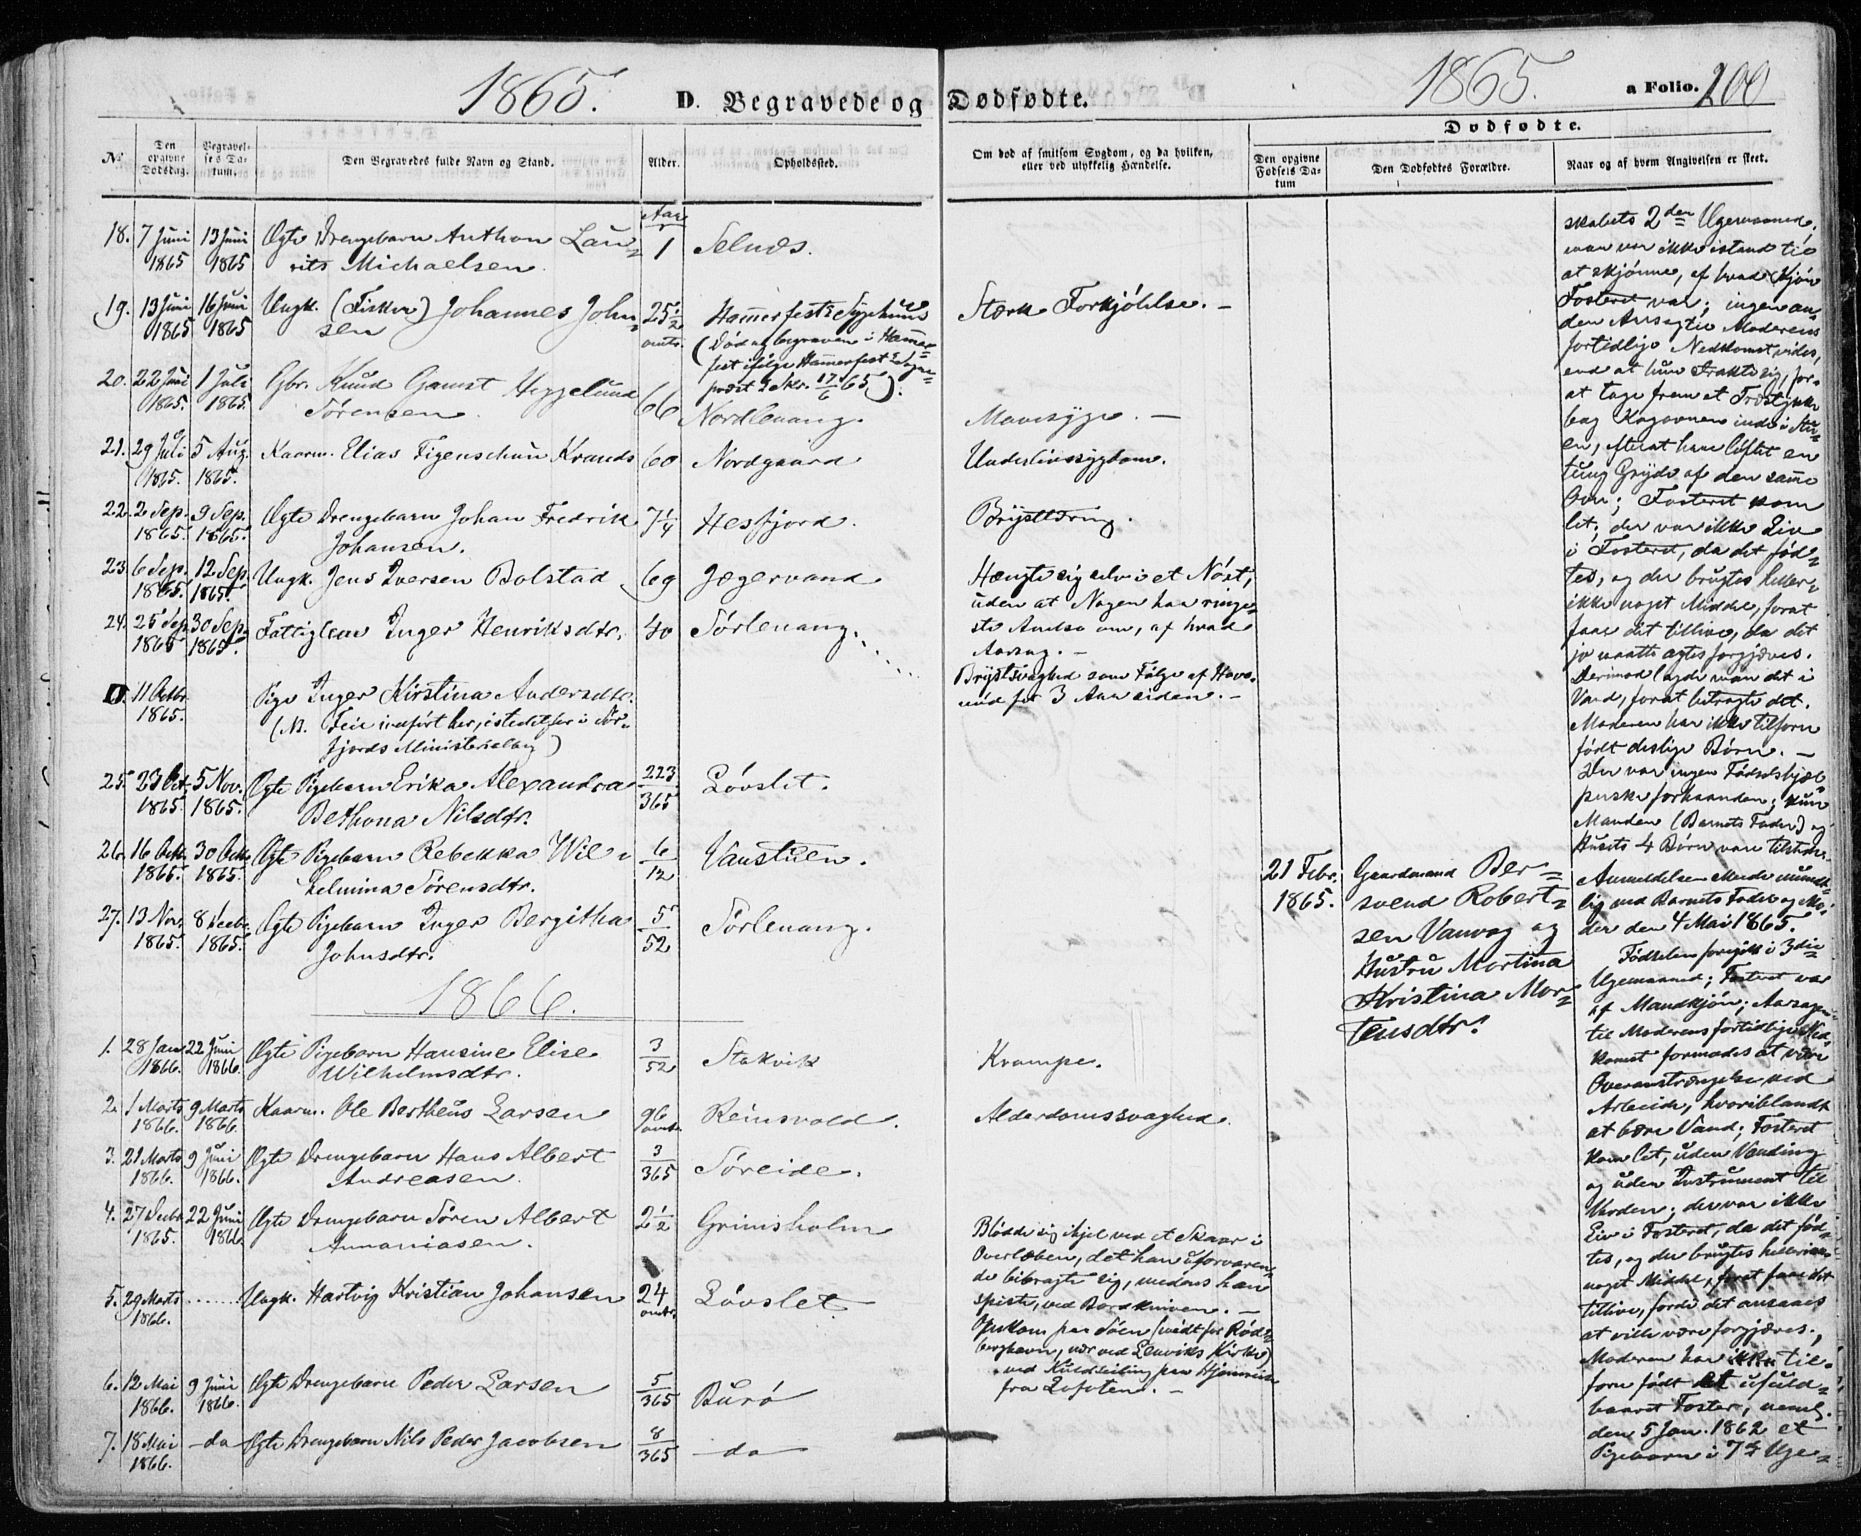 1865.
D. Begravede og Dødfødte.
1865.
a Folio. 200
Dødfødte.
No.
Den opgivne Dødsdag.
Begravelses Datum.
Den Begravedes fulde Navn og Stand.
Alder.
Opholdssted.
Om død af smitsom Sygdom, og da hvilken,
eller ved ulykkelig Hændelse.
Den opgivne Fødsels Datum
Den Dødfødtes Forældre.
Naar og af hvem Angivelsen er skeet.
18. 7 Juni 1865 13 Juni 1865 Ægte Drengebarn Anthon Lau-
rits Michaelsen Aar 1 Selnæs.
19. 13 Juni 1865 16 Juni 1865 Ungk. (Fisker) Johannes John-
sen 25 1/2 omtr. Hammerfests Sygehuus
(Død og begraven i Hammer-
fest ifølge Hammerfest Sogne-
præst's Skr. 17/6 65).
Stærk Forkjølelse. –
20. 22 Juni 1865. 1 Juli 1865. Gbr. Knud Gamst Heggelund
Sørensen 66 Nordlenang. Mavesyge. –
21. 29 Juli 1865. 5 Aug. 1865. Kaarm. Elias Figenschau Krands 60 Nordgaard Underlivssygdom.
22. 2 Sep. 1865. 9 Sep. 1865. Ægte Drengebarn Johan Fredrik
Johansen. 7 1/4 Hesfjord. Brysttæring.
23. 6 Sep. 1865. 12 Sep. 1865. Ungk. Jens Iversen Bolstad 69 Jægervand
Hængte sig selv i et Nøst,
uden at Nogen har ringe-
ste Anelse om, af hvad
Aarsag. –
24. 25 Sep. 1865 30 Sep. 1865. Fattiglem Inger Henriksdtr. 40 Sørlenang.
Brystsvaghed som Følge af Have-
nød for 3 Aar siden. –
D. 11 Octbr. 1865. Pige Inger Kirstina Andersdtr.
(NB. Feil indført her, istedetfor i Sør-
fjords Ministerialbog)
25. 23 Oct. 1865. 5 Nov. 1865. Ægte Pigebarn Erika Alexandra
Bethona Nilsdtr. 223/365 Løvslet.
26. 16 Octb. 1865. 30 Octb. 1865. Ægte Pigebarn Rebekka Wil-
helmina Sørensdtr. 6/12 Vanstuen.
27. 13 Nov. 1865. 8 Decbr. 1865. Ægte Pigebarn Inger Bergitha
Johnsdtr. 5/52 Sørlenang.
1866.
1. 28 Jan 1866. 22 Juni 1866. Ægte Pigebarn Hansine Elise
Wilhelmsdtr. 3/52 Stakvik Krampe.
2. 1 Marts 1866. 9 Marts 1866. Kaarm. Ole Bertheus Larsen 96 omtr. Reinsvold. Alderdomssvaghed.
3. 21 Marts 1866. 9 Juni 1866. Ægte Drengebarn Hans Albert
Andreasen. 3/365 Søreide.
4. 27 Decbr 1865. 22 Juni 1866. Ægte Drengebarn Søren Albert
Annaniasen. 2 1/2 Grimsholm
Blødde sig ihjel ved et Skaar i
Overlæben, det han uforvaren-
de bibragte sig, medens han
spiste, ved Bordkniven. –
5. 29 Marts 1866. ...... Ungk. Hartvig Kristian Johansen 24 omtr. Løvslet
Omkom paa Søen (midt for Røds-
berghavn, nær ved Lenviks Kirke)
ved Kuldseiling paa Hjemreise
fra Lofoten. –
6. 12 Mai 1866. 9 Juni 1866. Ægte Drengebarn Peder Larsen 5/365 Burø
7. 18 Mai 1866. – da Ægte Drengebarn Nils Peder Jacobsen 8/365 – da –
21 Febr. 1865.
Gaardmand Ber-
svend Robert-
sen Vanvag og
Hustru Martina
Kristina Mor-
tensdtr.
skabets 2den Ugemaaned,
man var ikke istand til
at skjønne, af hvad Kjøn
Fosteret var; ingen an-
den Aarsag til Moderens
fortidlige Nedkomst vides,
end at hun strakte sig, for
at tage frem et Træstykke
bag Kogovnen inde i Stu-
en, efterat have løftet en
tung Gryde af den samme
Ovn; Fosteret kom
let; der var ikke Liv
i Fosteret, da det fød-
tes, og der brugtes heller
ikke noget Middel, forat
faae det tillive, da det
jo maatte agtes forgjæves.
Derimod lagde man det i
Vand, forat betragte det.
Moderen har ikke tilforn
født deslige Børn. –
Der var ingen Fødselshjæl-
perske forhaanden; kun
Manden (Barnets Fader) og
Husets 4 Børn vare tilstede.
Anmeldelsen skede mundt-
lig ved Barnets Fader og Mo-
der den 4 Mai 1865.
Fødselen foregik i 3die
Ugemaaned; Fosteret var
af Mandkjøn; Aarsagen
til Moderens fortidlige Ned-
komst formodes at være
Overanstrængelse ved
Arbeide, hvoriblandt
at bære Vand; Fosteret
kom let, uden Vanding
og uden Instrument til
Moder; der var ikke
Liv i Fosteret, da det fød-
tes, og der brugtes heller ikke
noget Middel, forat faae det
tillive, fordi det ansaaes
at ville være forgjæves.
Moderen har ikke til-
forn født et ufuld-
baaret Foster, neml.
den 5 Jan. 1862 et
Pigebarn i 7de Uge-